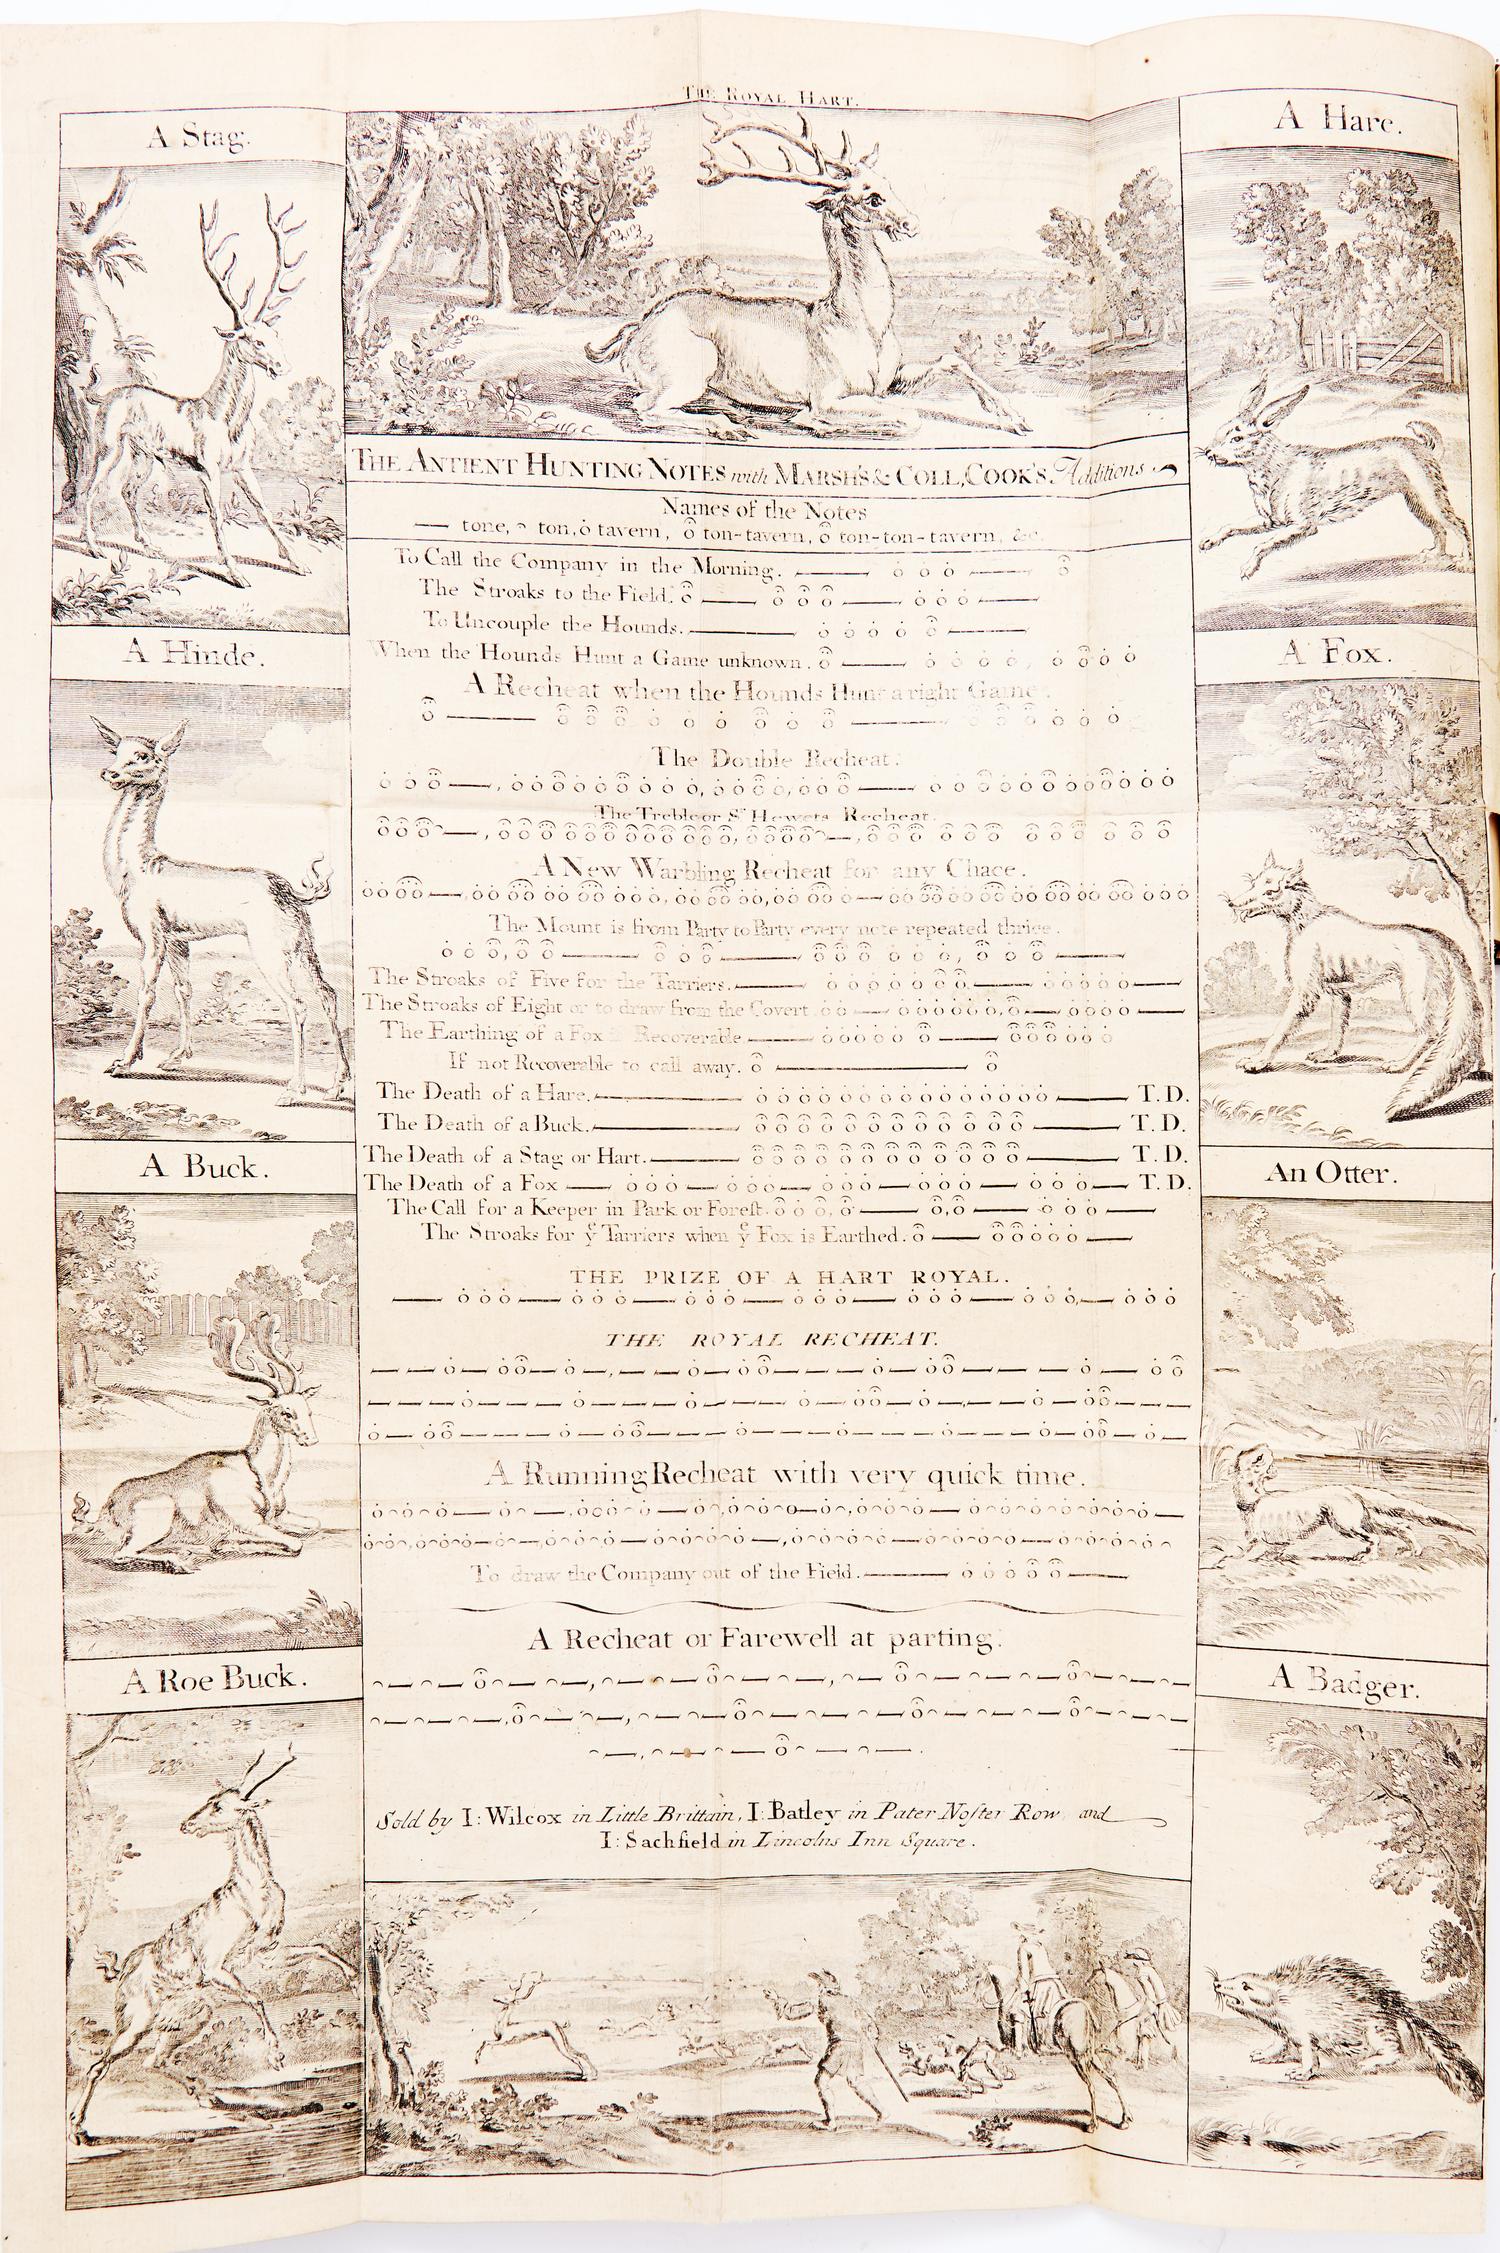 THE ROYAL HART.
A Stag.
A Hare.
THE ANTIENT HUNTING NOTES with MARSH'S & COLL, COOK'S Additions
Names of the Notes
tone, ton, tavern, ton-tavern, ton-ton-tavern, &c.
To Call the Company in the Morning.
The Stroaks to the Field.
To Uncouple the Hounds.
A Hinde.
When the Hounds Hunt a Game unknown.
A Fox.
A Recheat when the Hounds Hunt a right Game.
The Double Recheat.
The Treble or St Hewets Recheat.
A New Warbling Recheat for any Chace.
The Mount is from Party to Party every note repeated thrice.
The Stroaks of Five for the Tarriers.
The Stroaks of Eight or to draw from the Covert
The Earthing of a Fox Recoverable
If not Recoverable to call away.
The Death of a Hare. T.D.
The Death of a Buck. T.D.
A Buck.
The Death of a Stag or Hart. T.D.
An Otter.
The Death of a Fox T.D.
The Call for a Keeper in Park or Forest.
The Stroaks for ye Tarriers when ye Fox is Earthed.
THE PRIZE OF A HART ROYAL.
THE ROYAL RECHEAT.
A Running Recheat with very quick time.
To draw the Company out of the Field.
A Recheat or Farewell at parting.
A Roe Buck.
A Badger.
Sold by I: Wilcox in Little Brittain, I: Batley in Pater Noster Row, and
I: Sachfield in Lincolns Inn Square.